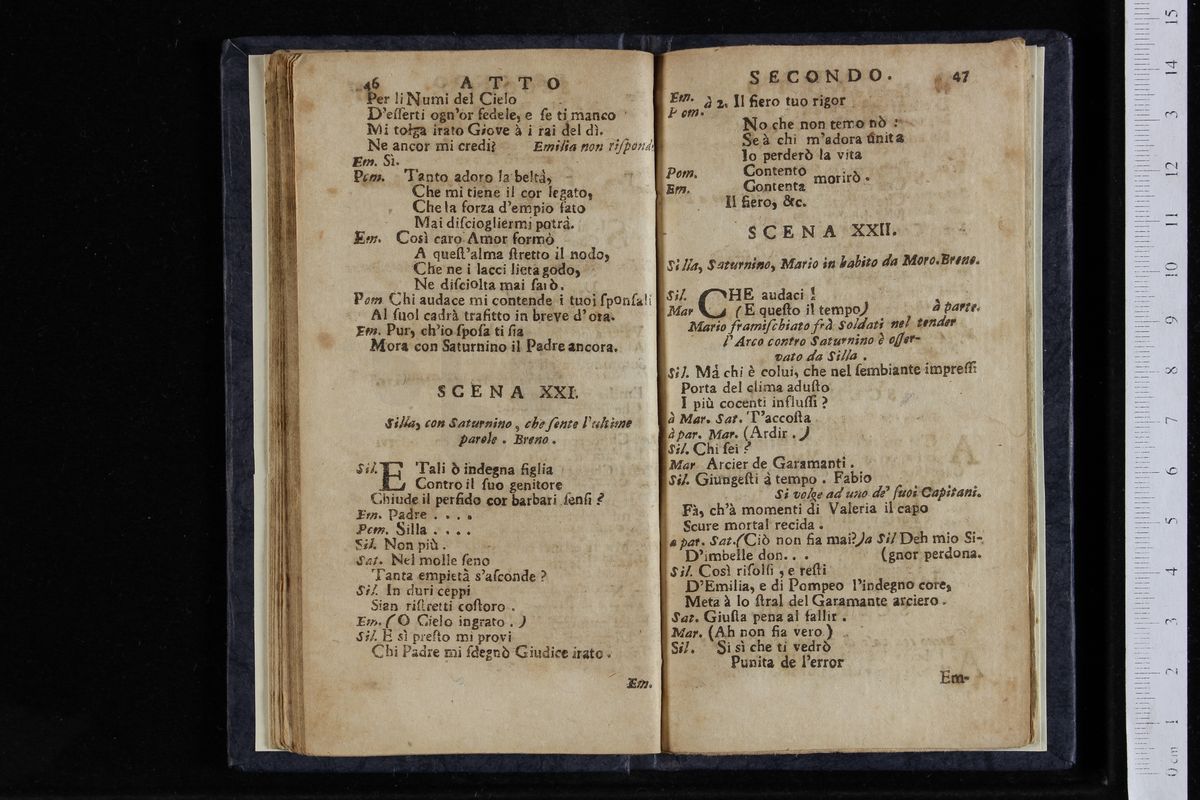 46 ATTO
Per li Numi del Cielo
D'eſſerti ogn'or fedele, e ſe ti manco
Mi tolga irato Giove à i rai del dì.
Ne ancor mi credi? Emilia non riſponde
Em. Sì.
Pom. Tanto adoro la beltà,
Che mi tiene il cor legato,
Che la forza d'empio fato
Mai diſciogliermi potrà.
Em. Così caro Amor formò
A queſt'alma ſtretto il nodo,
Che ne i lacci lieta godo,
Ne diſciolta mai ſaiò.
Pom Chi audace mi contende i tuoi ſponſali
Al ſuol cadrà trafitto in breve d'ora.
Em. Pur, ch'io ſpoſa ti ſia
Mora con Saturnino il Padre ancora.
SCENA XXI.
Silla, con Saturnino, che ſente l'ultime
parole. Breno.
Sil. E Tali ò indegna figlia
Contro il ſuo genitore
Chiude il perfido cor barbari ſenſi?
Em. Padre ....
Pom. Silla ....
Sil. Non più.
Sat. Nel molle ſeno
Tanta empietà s'aſconde?
Sil. In duri ceppi
Sian riſtretti coſtoro.
Em. (O Cielo ingrato.)
Sil. E sì preſto mi provi
Chi Padre mi ſdegnò Giudice irato.
Em.
SECONDO. 47
Em.
Pom. à 2. Il fiero tuo rigor
No che non temo nò:
Se à chi m'adora unita
Io perderò la vita
Pom. Contento
Em. Contenta morirò.
Il fiero, &c.
SCENA XXII.
Silla, Saturnino, Mario in habito da Moro. Breno.
Sil. CHE audaci!
Mar (E queſto il tempo) à parte.
Mario framiſchiato frà Soldati nel tender
l'Arco contro Saturnino è oſſer-
vato da Silla.
Sil. Mà chi è colui, che nel ſembiante impreſſi
Porta del clima aduſto
I più cocenti influſſi?
à Mar. Sat. T'accoſta
à par. Mar. (Ardir.)
Sil. Chi ſei?
Mar Arcier de Garamanti.
Sil. Giungeſti à tempo. Fabio
Si volge ad uno de' ſuoi Capitani.
Fà, ch'à momenti di Valeria il capo
Scure mortal recida.
a par. Sat. (Ciò non fia mai?) a Sil Deh mio Si-
D'imbelle don... (gnor perdona.
Sil. Così riſolſi, e reſti
D'Emilia, e di Pompeo l'indegno core,
Meta à lo ſtral del Garamante arciero.
Sat. Giuſta pena al fallir.
Mar. (Ah non fia vero)
Sil. Si sì che ti vedrò
Punita de l'error
Em-
0 cm 1 2 3 4 5 6 7 8 9 10 11 12 13 14 15